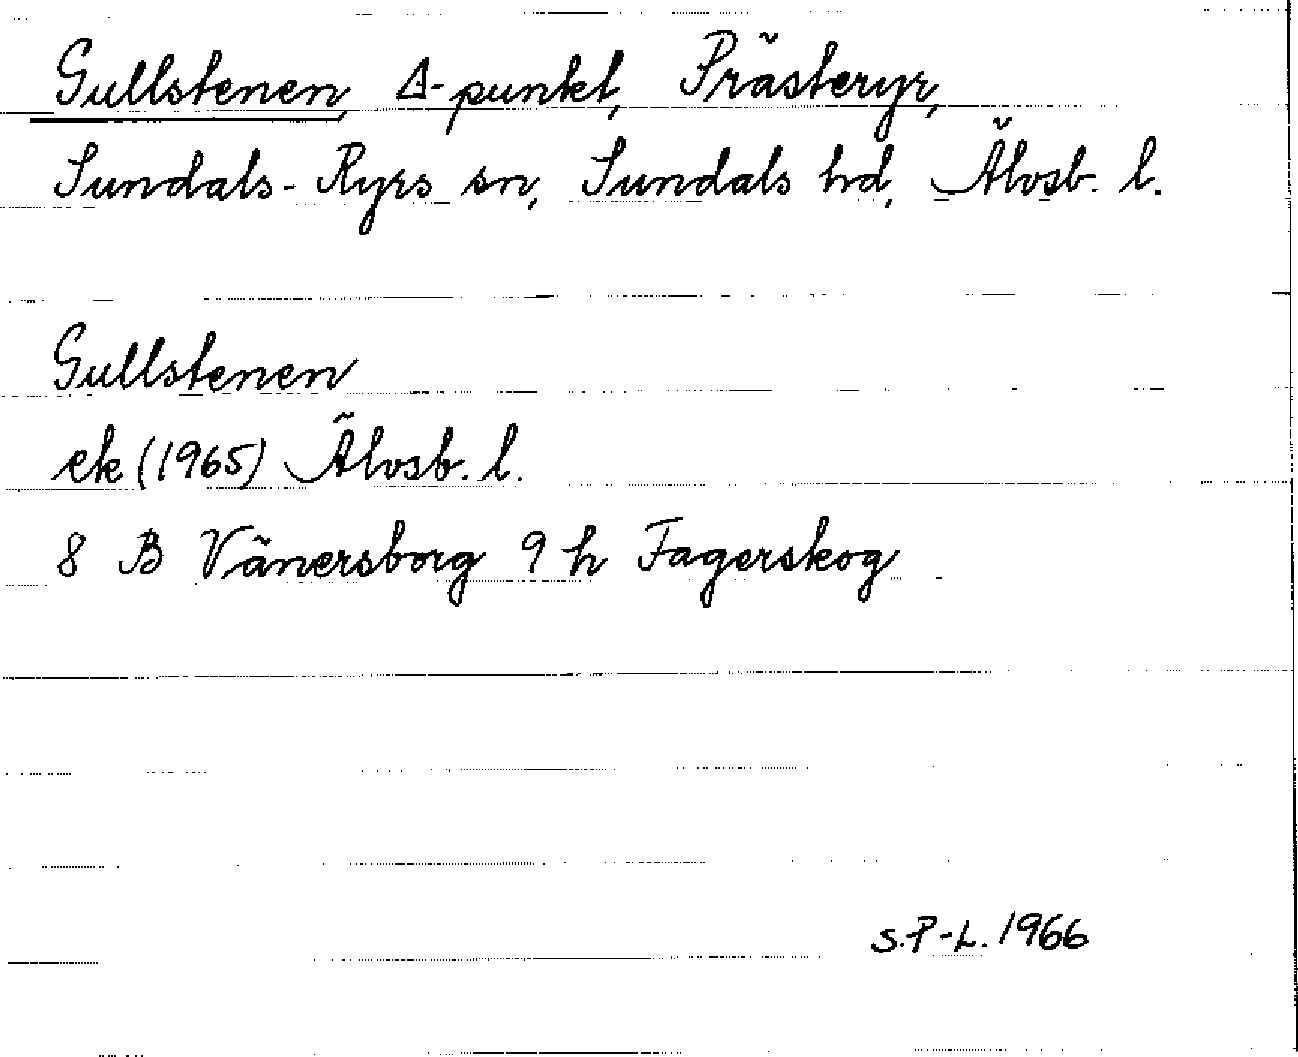 Gullstenen, Δ-punkt, Prästeryr,
Sundals-Ryrs sn, Sundals hd, Älvsb. l.
Gullstenen
ek (1965) Älvsb. l.
8 B Vänersborg 9 h Fagerskog
S.P-L. 1966